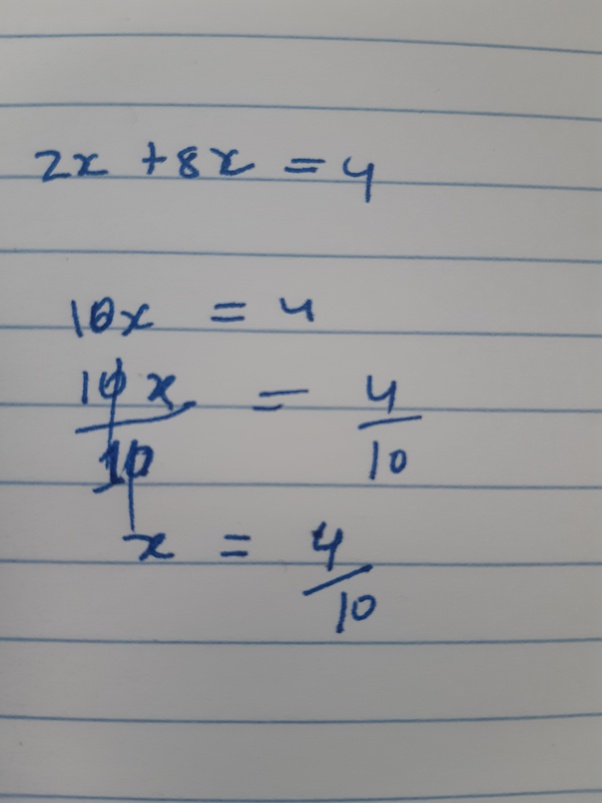 2x + 8x = 4
10x = 4
10x/10 = 4/10
x = 4/10